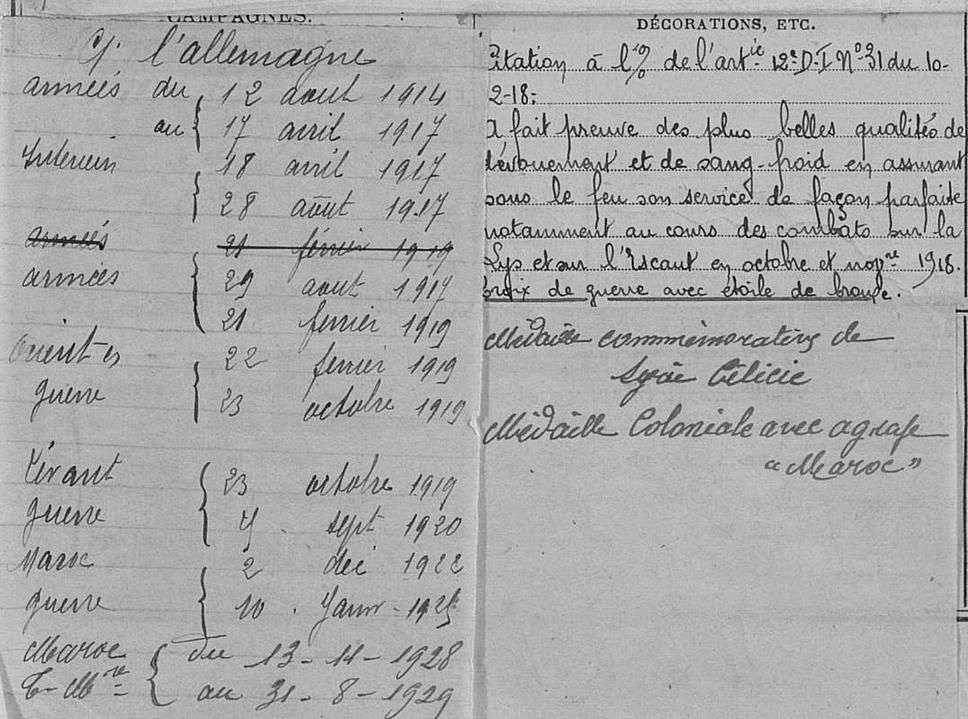 CAMPAGNES.
C/ l'allemagne
armées du 12 aout 1914
au 17 avril 1917
Intérieur 18 avril 1917
28 août 1917
armées 21 février 1919
armées 29 aout 1917
21 fevrier 1919
Orient en 22 fevrier 1919
guerre 23 octobre 1919
Lévant 23 octobre 1919
guerre 4 sept 1920
Maroc 2 déc 1922
guerre 10 Janv - 1925
Maroc du 13 - 11 - 1928
T-Mre au 31 - 8 - 1929
DÉCORATIONS, ETC.
Citation à l'o/ de l'artie 12e D.I No 31 du 10-
2-18:
A fait preuve des plus belles qualités de
dévouement et de sang-froid en assurant
sous le feu son service de façon parfaite
notamment au cours des combats sur la
Lys et sur l'Escaut en octobre et novre 1918.
Croix de guerre avec étoile de bronze.
Médaille commémorative de
Syrie Cilicie
Médaille Coloniale avec agrafe
"Maroc"